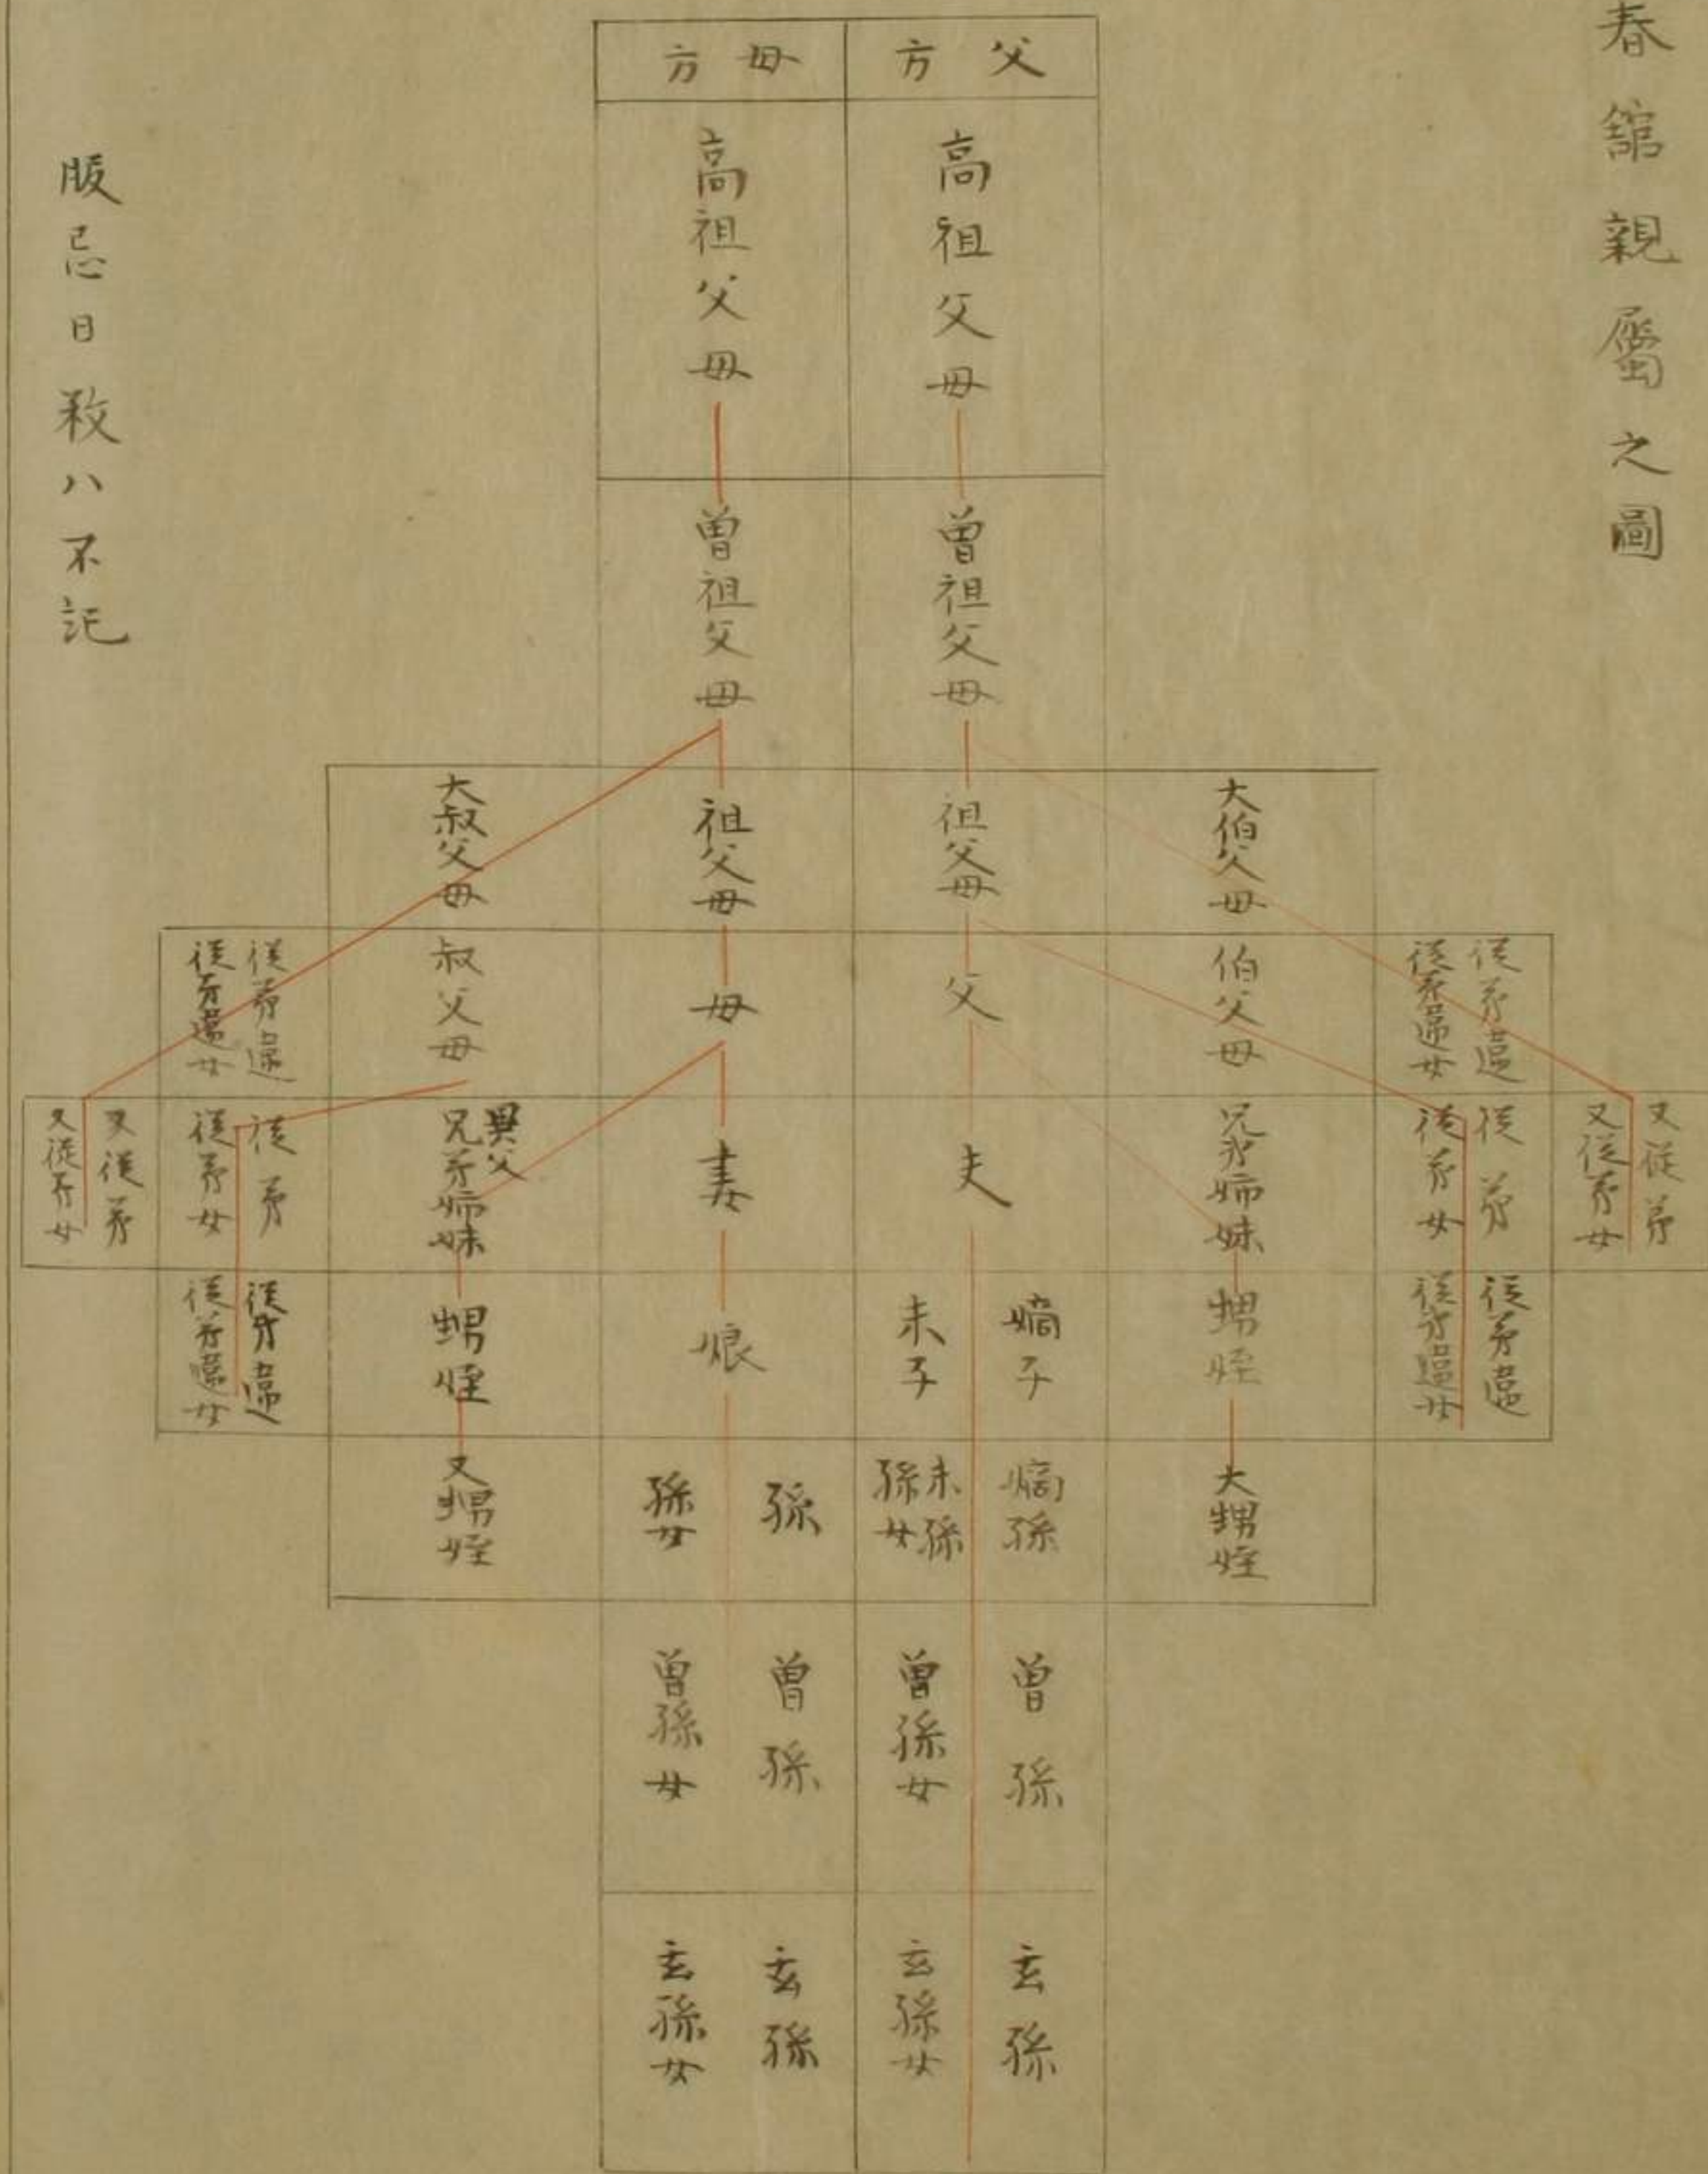 春舘親属之圖
父方
母方
高祖父母
高祖父母
曽祖父母
曽祖父母
大伯父母
祖父母
祖父母
大叔父母
従弟違
従弟違女
伯父母
父
母
叔父母
従弟違
従弟違女
又従弟
又従弟女
従弟
従弟女
兄弟姉妹
夫
妻
異父
兄弟姉妹
従弟
従弟女
又従弟
又従弟女
従弟違
従弟違女
甥姪
嫡子
末子
娘
甥姪
従弟違
従弟違女
大甥姪
嫡孫
末孫
孫女
孫
孫女
又甥姪
曽孫
曽孫女
曽孫
曽孫女
玄孫
玄孫女
玄孫
玄孫女
服忌日数ハ不記